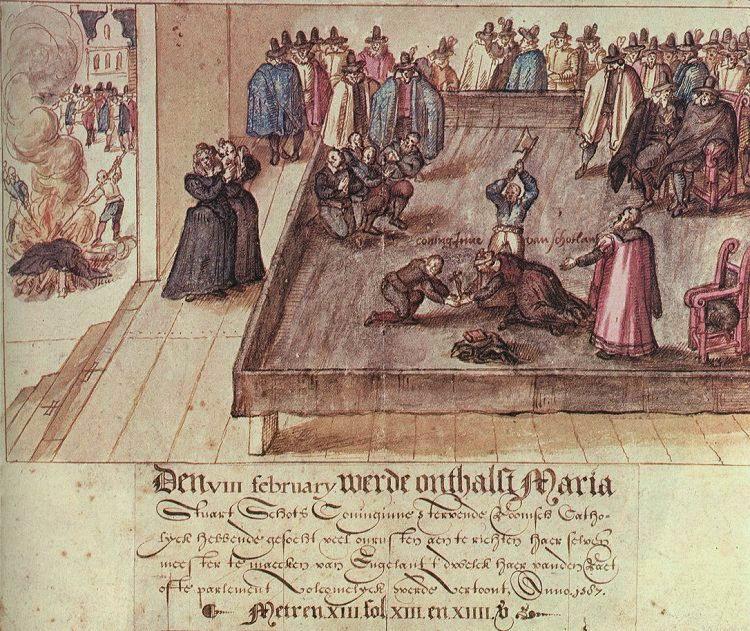 coninginne van schotlant
Den VIII february werde onthalst Maria
Stuart Schots Coninginne stervende Roomsch Catho-
lyck hebbende gesocht veel onrusten aen te richten haer selven
meester te maecken van Engelant t'dwelck haer vanden Raet
ofte parlement volcomelyck werde vertoont. Anno. 1587.
Metren XIII. fol. XIII. en XIIII.